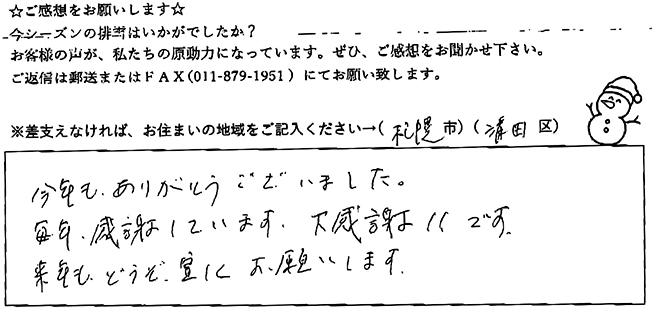 ☆ご感想をお願いします☆
今シーズンの排雪はいかがでしたか？
お客様の声が、私たちの原動力になっています。ぜひ、ご感想をお聞かせ下さい。
ご返信は郵送またはＦＡＸ(011-879-1951）にてお願い致します。
※差支えなければ、お住まいの地域をご記入ください→( 札幌 市) ( 清田 区)
今年も、ありがとうございました。
毎年、感謝しています、大感謝 です。
来年も、どうぞ、宜しく お願いします。